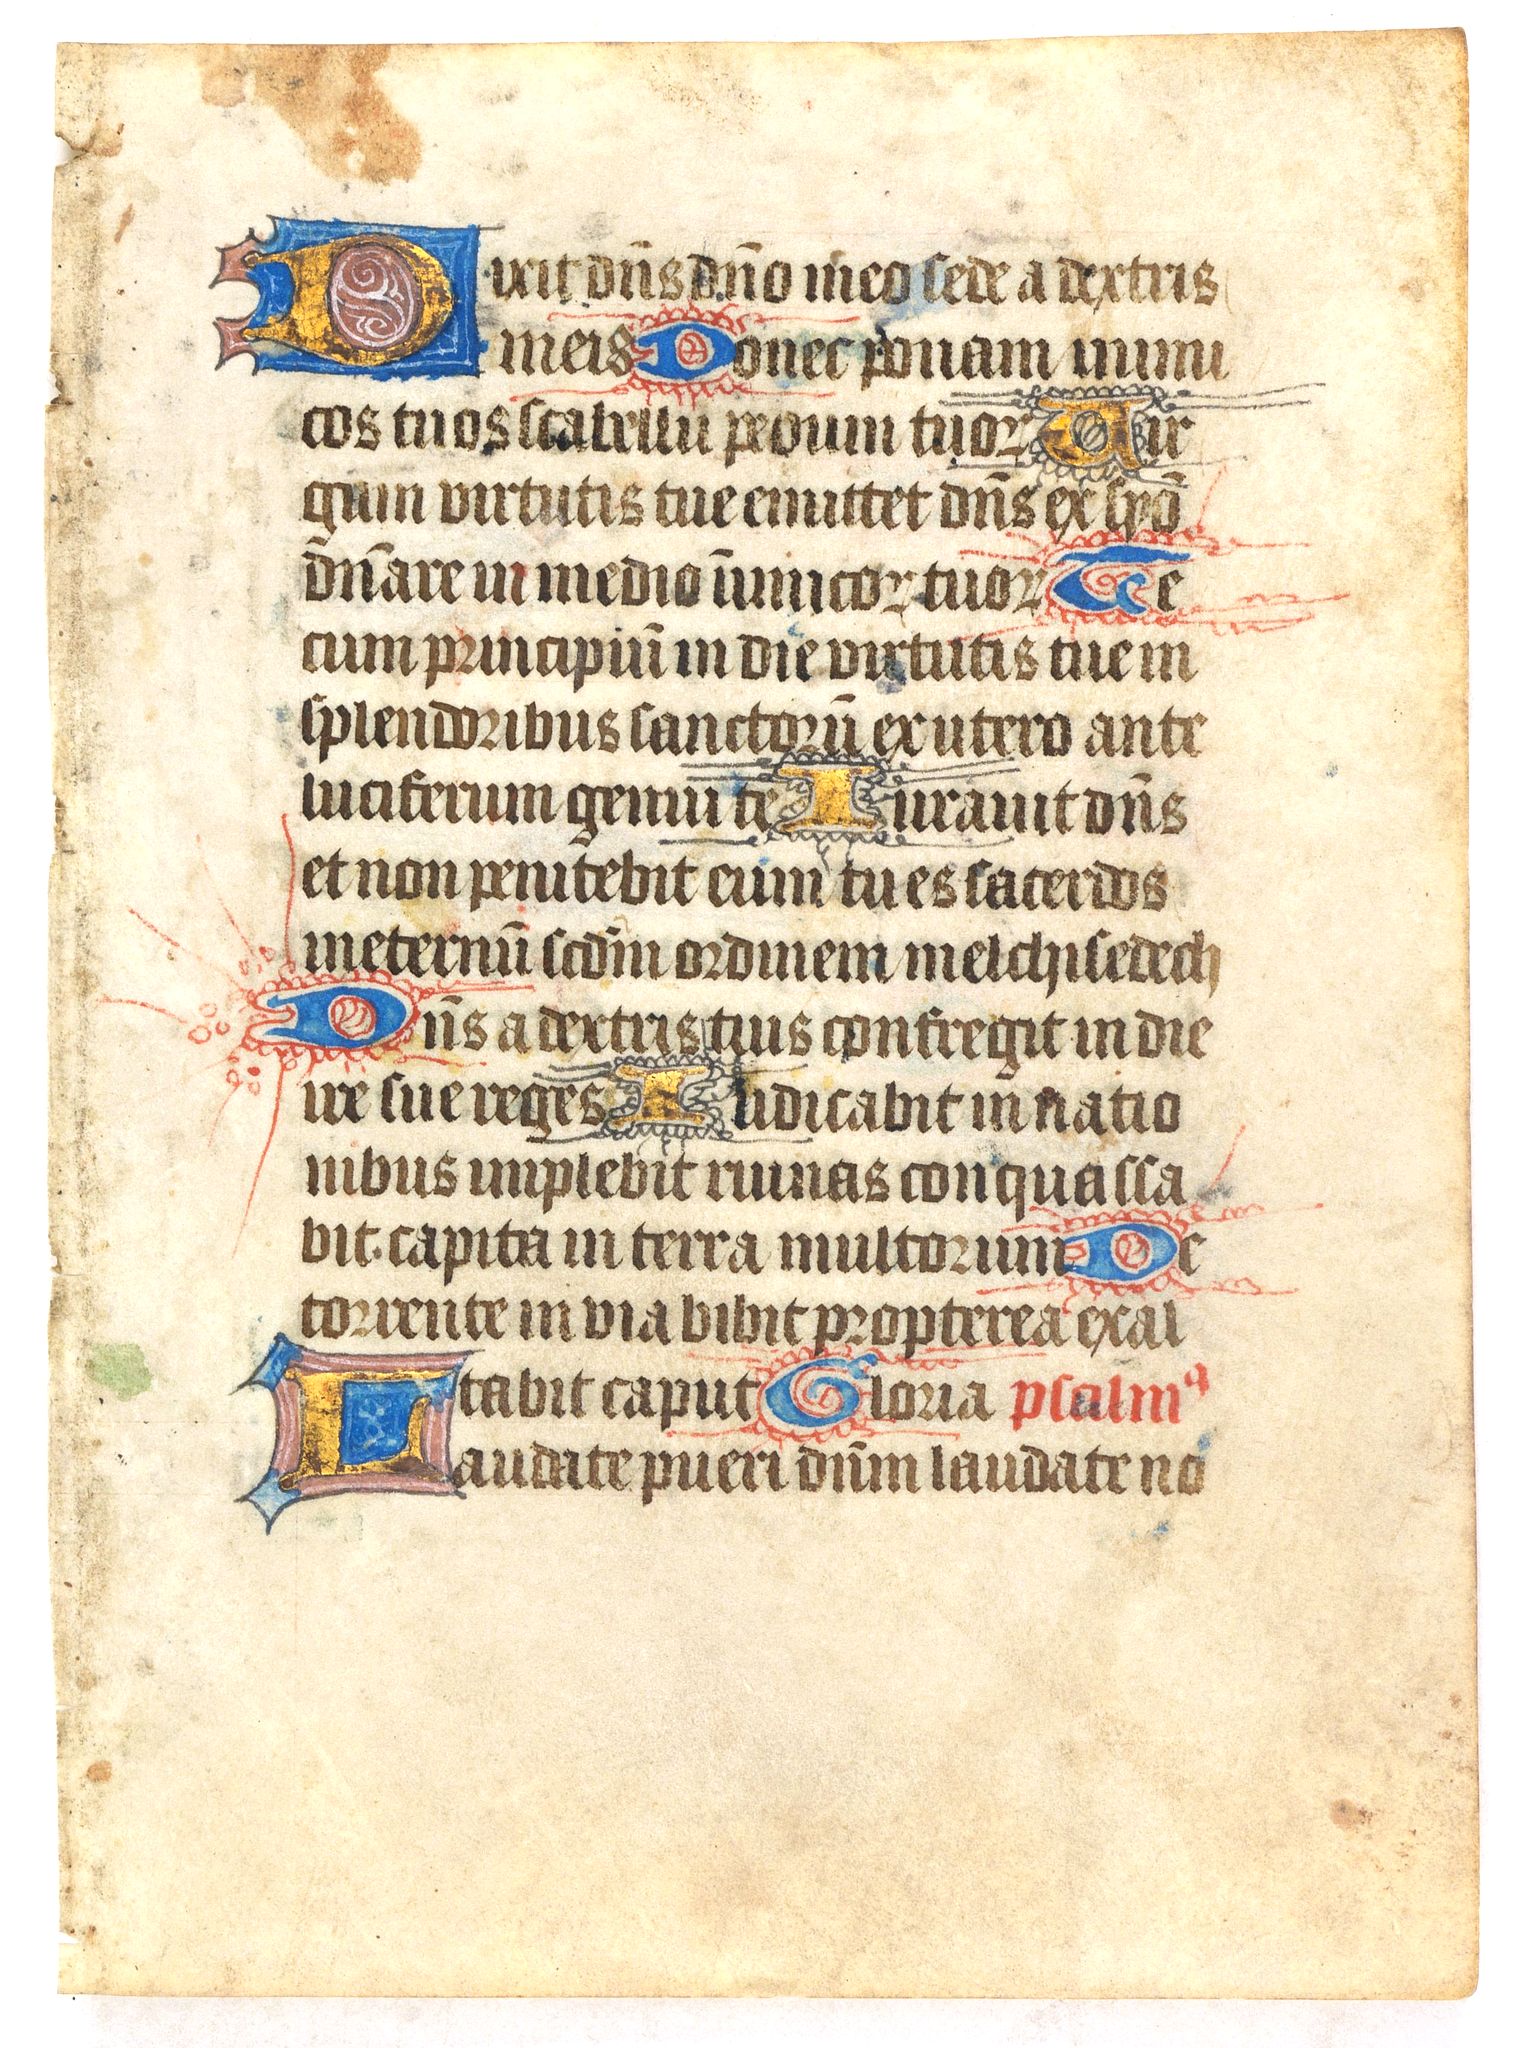 Dixit dn̄s dn̄o meo sede a dextris
meis Donec ponam inimi
cos tuos scabellū pedum tuoꝝ Uir
gam virtutis tue emittet dn̄s ex syō
dn̄are in medio inimicoꝝ tuoꝝ Te
cum principiū in die virtutis tue in
splendoribus sanctorū ex utero ante
luciferum genui te Iurauit dn̄s
et non penitebit eum tu es sacerdos
ineternū scdm̄ ordinem melchisedech
Dn̄s a dextris tuis confregit in die
ire sue reges Iudicabit in natio
nibus implebit ruinas conquassa
bit capita in terra multorum De
torrente in via bibit propterea exal
tabit caput Gloria psalmꝰ
Laudate pueri dn̄m laudate no